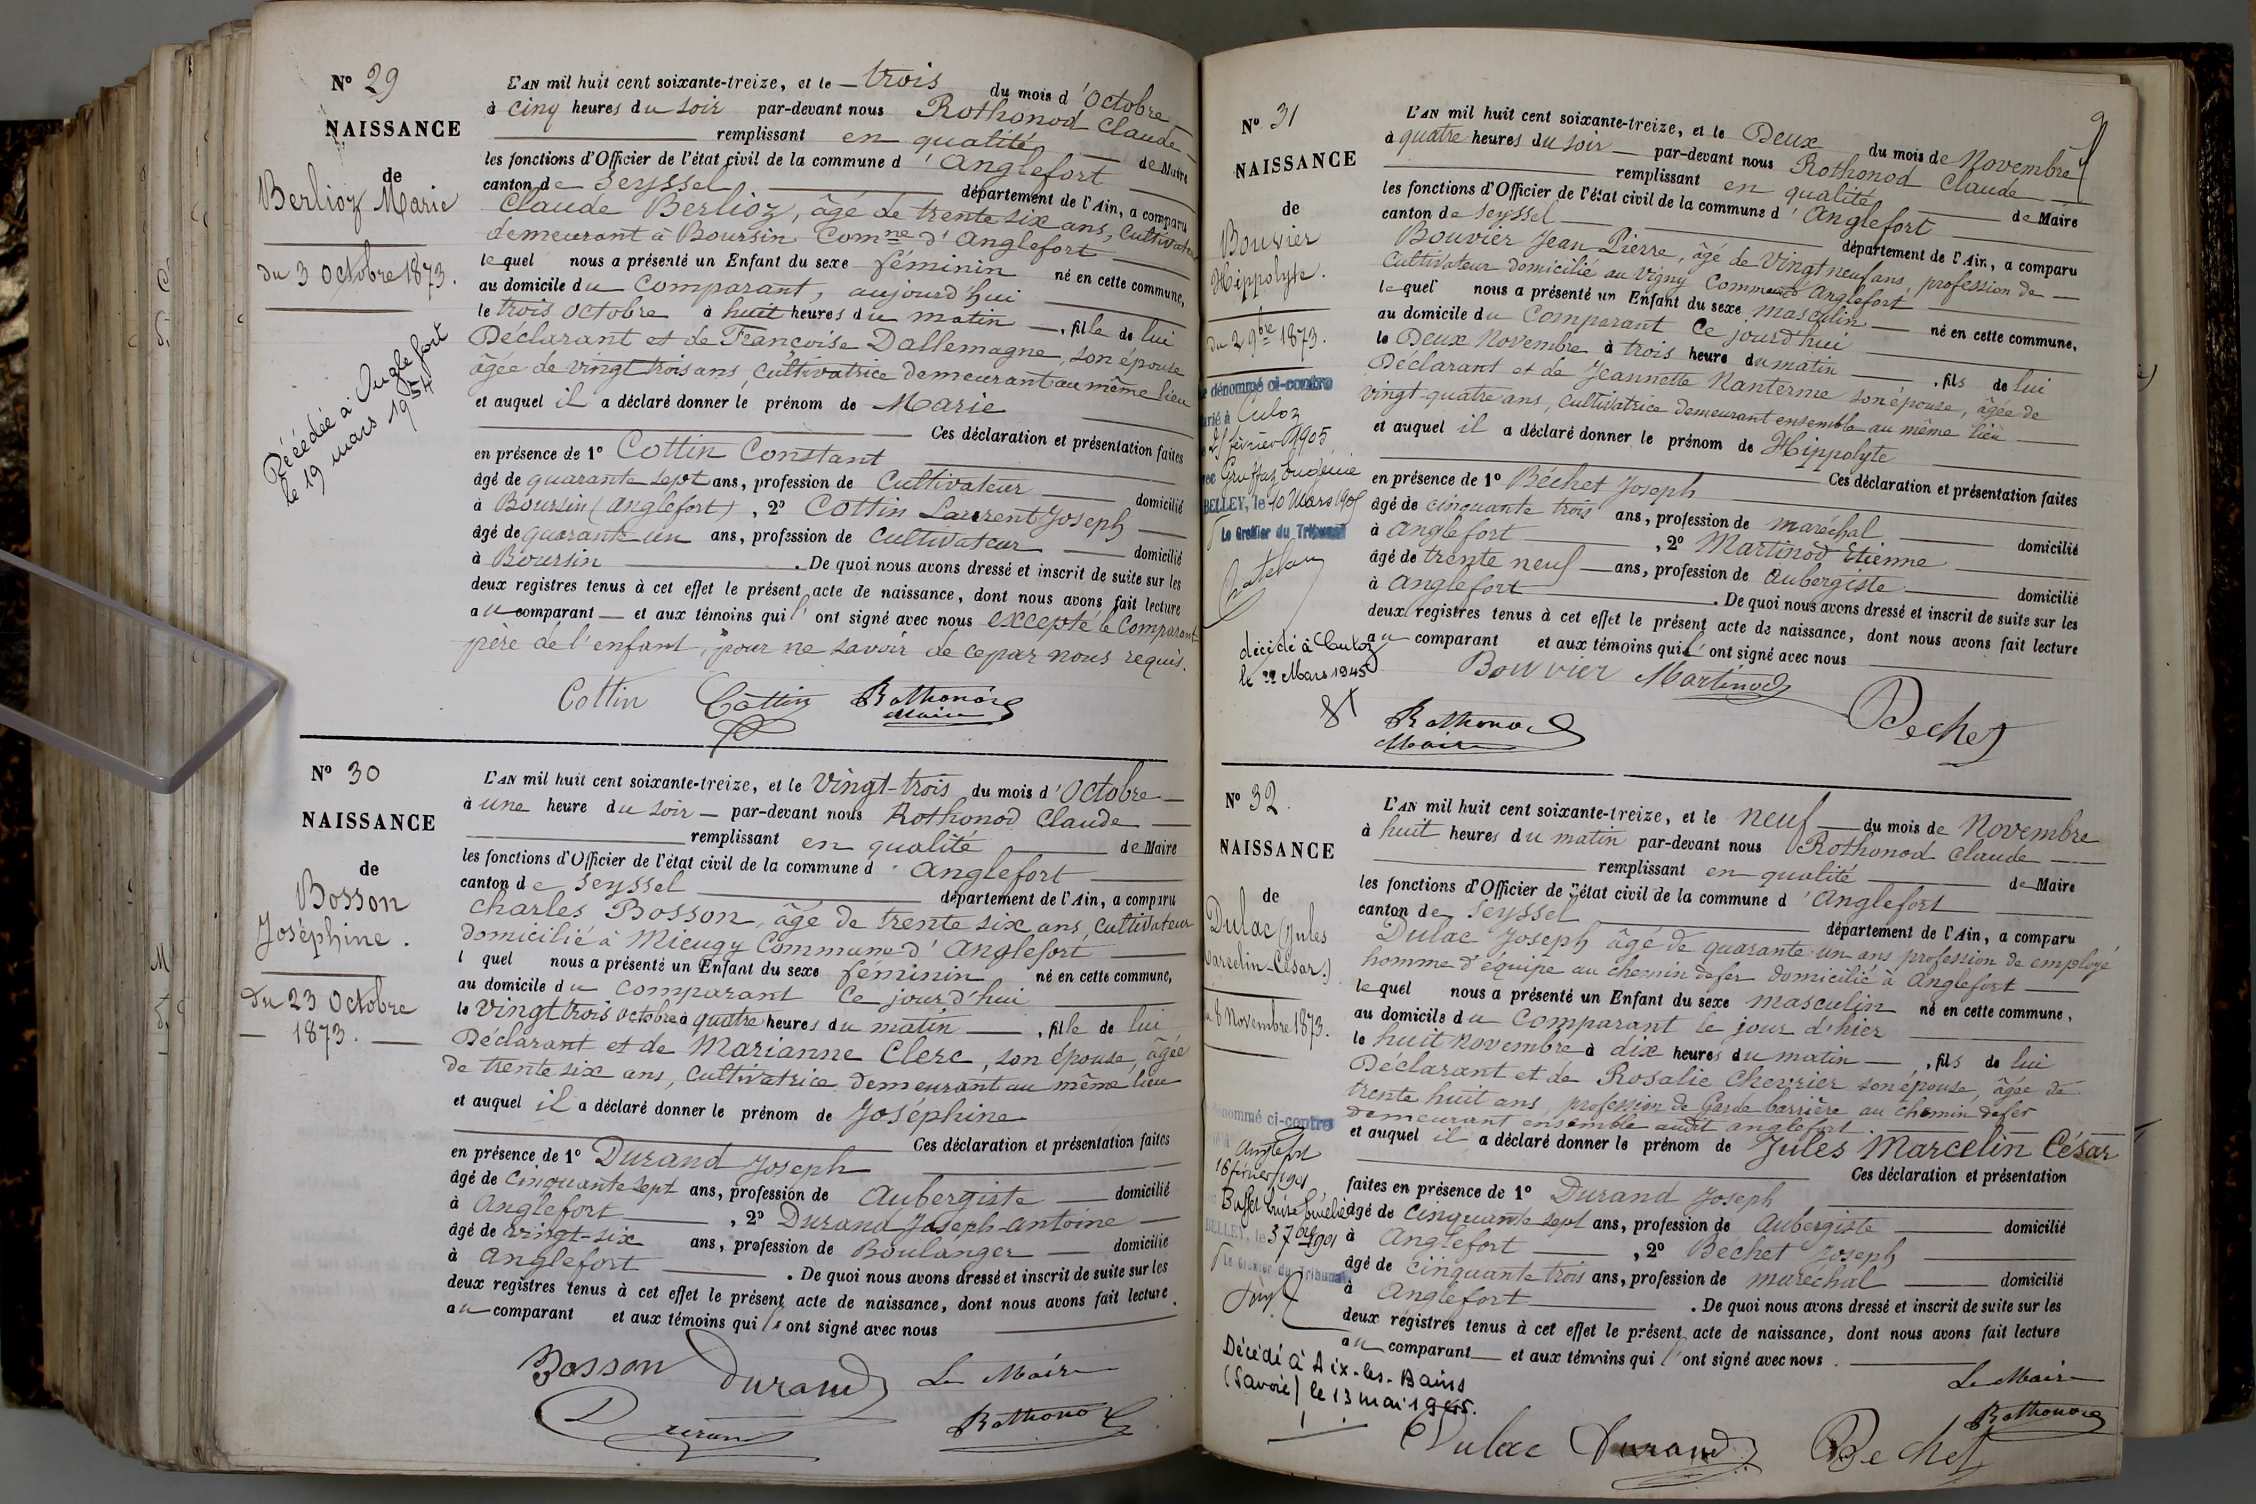 N° 29
NAISSANCE
de
Berlioz Marie
du 3 Octobre 1873.
Décédée à Anglefort
le 19 mars 1954
L'AN mil huit cent soixante-treize, et le trois du mois d'Octobre
à cinq heures du soir par-devant nous Rothonod Claude
remplissant en qualité de Maire
les fonctions d'Officier de l'état civil de la commune d'Anglefort
canton de Seyssel département de l'Ain, a comparu
Claude Berlioz, âgé de trente six ans, Cultivateur
demeurant à Boursin Comne d'Anglefort
lequel nous a présenté un Enfant du sexe féminin né en cette commune,
au domicile du Comparant, aujourd'hui
le trois Octobre à huit heures du matin, fille de lui
Déclarant et de Françoise Dallemagne, son épouse
âgée de vingt trois ans, Cultivatrice demeurant au même lieu
et auquel il a déclaré donner le prénom de Marie
Ces déclaration et présentation faites
en présence de 1° Cottin Constant
âgé de quarante sept ans, profession de Cultivateur domicilié
à Boursin (Anglefort), 2° Cottin Laurent Joseph
âgé de quarante un ans, profession de Cultivateur domicilié
à Boursin. De quoi nous avons dressé et inscrit de suite sur les
deux registres tenus à cet effet le présent acte de naissance, dont nous avons fait lecture
au comparant et aux témoins qui l'ont signé avec nous excepté le Comparant
père de l'enfant, pour ne savoir de ce par nous requis.
Cottin Cottin Rothonod
Maire
N° 30
NAISSANCE
de
Bosson
Joséphine.
du 23 Octobre
1873.
L'AN mil huit cent soixante-treize, et le Vingt-trois du mois d'Octobre
à une heure du soir par-devant nous Rothonod Claude
remplissant en qualité de Maire
les fonctions d'Officier de l'état civil de la commune d'Anglefort
canton de Seyssel département de l'Ain, a comparu
Charles Bosson, âgé de trente six ans, Cultivateur
domicilié à Mieugy Commune d'Anglefort
l quel nous a présenté un Enfant du sexe féminin né en cette commune,
au domicile du comparant Ce jourd'hui
le Vingt trois Octobre à quatre heures du matin, fille de lui
Déclarant et de Marianne Clerc, son épouse, âgée
de trente six ans, Cultivatrice demeurant au même lieu
et auquel il a déclaré donner le prénom de Joséphine
Ces déclaration et présentation faites
en présence de 1° Durand Joseph
âgé de Cinquante sept ans, profession de Aubergiste domicilié
à Anglefort, 2° Durand Joseph-Antoine
âgé de vingt-six ans, profession de Boulanger domicilié
à Anglefort. De quoi nous avons dressé et inscrit de suite sur les
deux registres tenus à cet effet le présent acte de naissance, dont nous avons fait lecture
au comparant et aux témoins qui l'ont signé avec nous.
Bosson Durand Le Maire
Durand Rothonod
9
N° 31
NAISSANCE
de
Bouvier
Hippolyte.
du 2 9bre 1873.
dénommé ci-contre
Culoz
février 1905
Gruffaz Eugénie
BELLEY, le 10 Mars 1905
Le Greffier du Tribunal
décédé à Culoz
le 22 Mars 1945
L'AN mil huit cent soixante-treize, et le Deux du mois de Novembre
à quatre heures du soir par-devant nous Rothonod Claude
remplissant en qualité de Maire
les fonctions d'Officier de l'état civil de la commune d'Anglefort
canton de Seyssel département de l'Ain, a comparu
Bouvier Jean Pierre, âgé de Vingt neuf ans, profession de
Cultivateur domicilié au Vigny Commune Anglefort
lequel nous a présenté un Enfant du sexe masculin né en cette commune,
au domicile du Comparant Ce jourd'hui
le Deux Novembre à trois heure du matin, fils de lui
Déclarant et de Jeannette Nanterme son épouse, âgée de
vingt-quatre ans, Cultivatrice demeurant ensemble au même lieu
et auquel il a déclaré donner le prénom de Hippolyte
Ces déclaration et présentation faites
en présence de 1° Béchet Joseph
âgé de cinquante trois ans, profession de maréchal domicilié
à Anglefort, 2° Martinod Etienne
âgé de trente neuf ans, profession de Aubergiste domicilié
à Anglefort. De quoi nous avons dressé et inscrit de suite sur les
deux registres tenus à cet effet le présent acte de naissance, dont nous avons fait lecture
au comparant et aux témoins qui l'ont signé avec nous
Bouvier Martinod Bechet
Rothonod
Maire
N° 32.
NAISSANCE
de
Dulac (Jules
Marcelin-César.)
8 Novembre 1873.
dénommé ci-contre
Anglefort
16 février 1901
BELLEY, le
Le Greffier du Tribunal
Décédé à Aix-les-Bains
(Savoie) le 13 mai 1945.
L'AN mil huit cent soixante-treize, et le neuf du mois de Novembre
à huit heures du matin par-devant nous Rothonod Claude
remplissant en qualité de Maire
les fonctions d'Officier de l'état civil de la commune d'Anglefort
canton de Seyssel département de l'Ain, a comparu
Dulac Joseph âgé de quarante-un ans profession de employé
homme d'équipe au chemin de fer domicilié à Anglefort
lequel nous a présenté un Enfant du sexe masculin né en cette commune,
au domicile du Comparant le jour d'hier
le huit Novembre à dix heures du matin, fils de lui
Déclarant et de Rosalie Chevrier son épouse, âgée de
trente huit ans, profession de Garde barrière au chemin de fer
demeurant ensemble audit Anglefort.
et auquel il a déclaré donner le prénom de Jules Marcelin César
Ces déclaration et présentation
faites en présence de 1° Durand Joseph
âgé de Cinquante sept ans, profession de Aubergiste domicilié
à Anglefort, 2° Béchet Joseph
âgé de cinquante trois ans, profession de maréchal domicilié
à Anglefort. De quoi nous avons dressé et inscrit de suite sur les
deux registres tenus à cet effet le présent acte de naissance, dont nous avons fait lecture
au comparant et aux témoins qui l'ont signé avec nous.
Le Maire
Rothonod
Dulac Durand Bechet